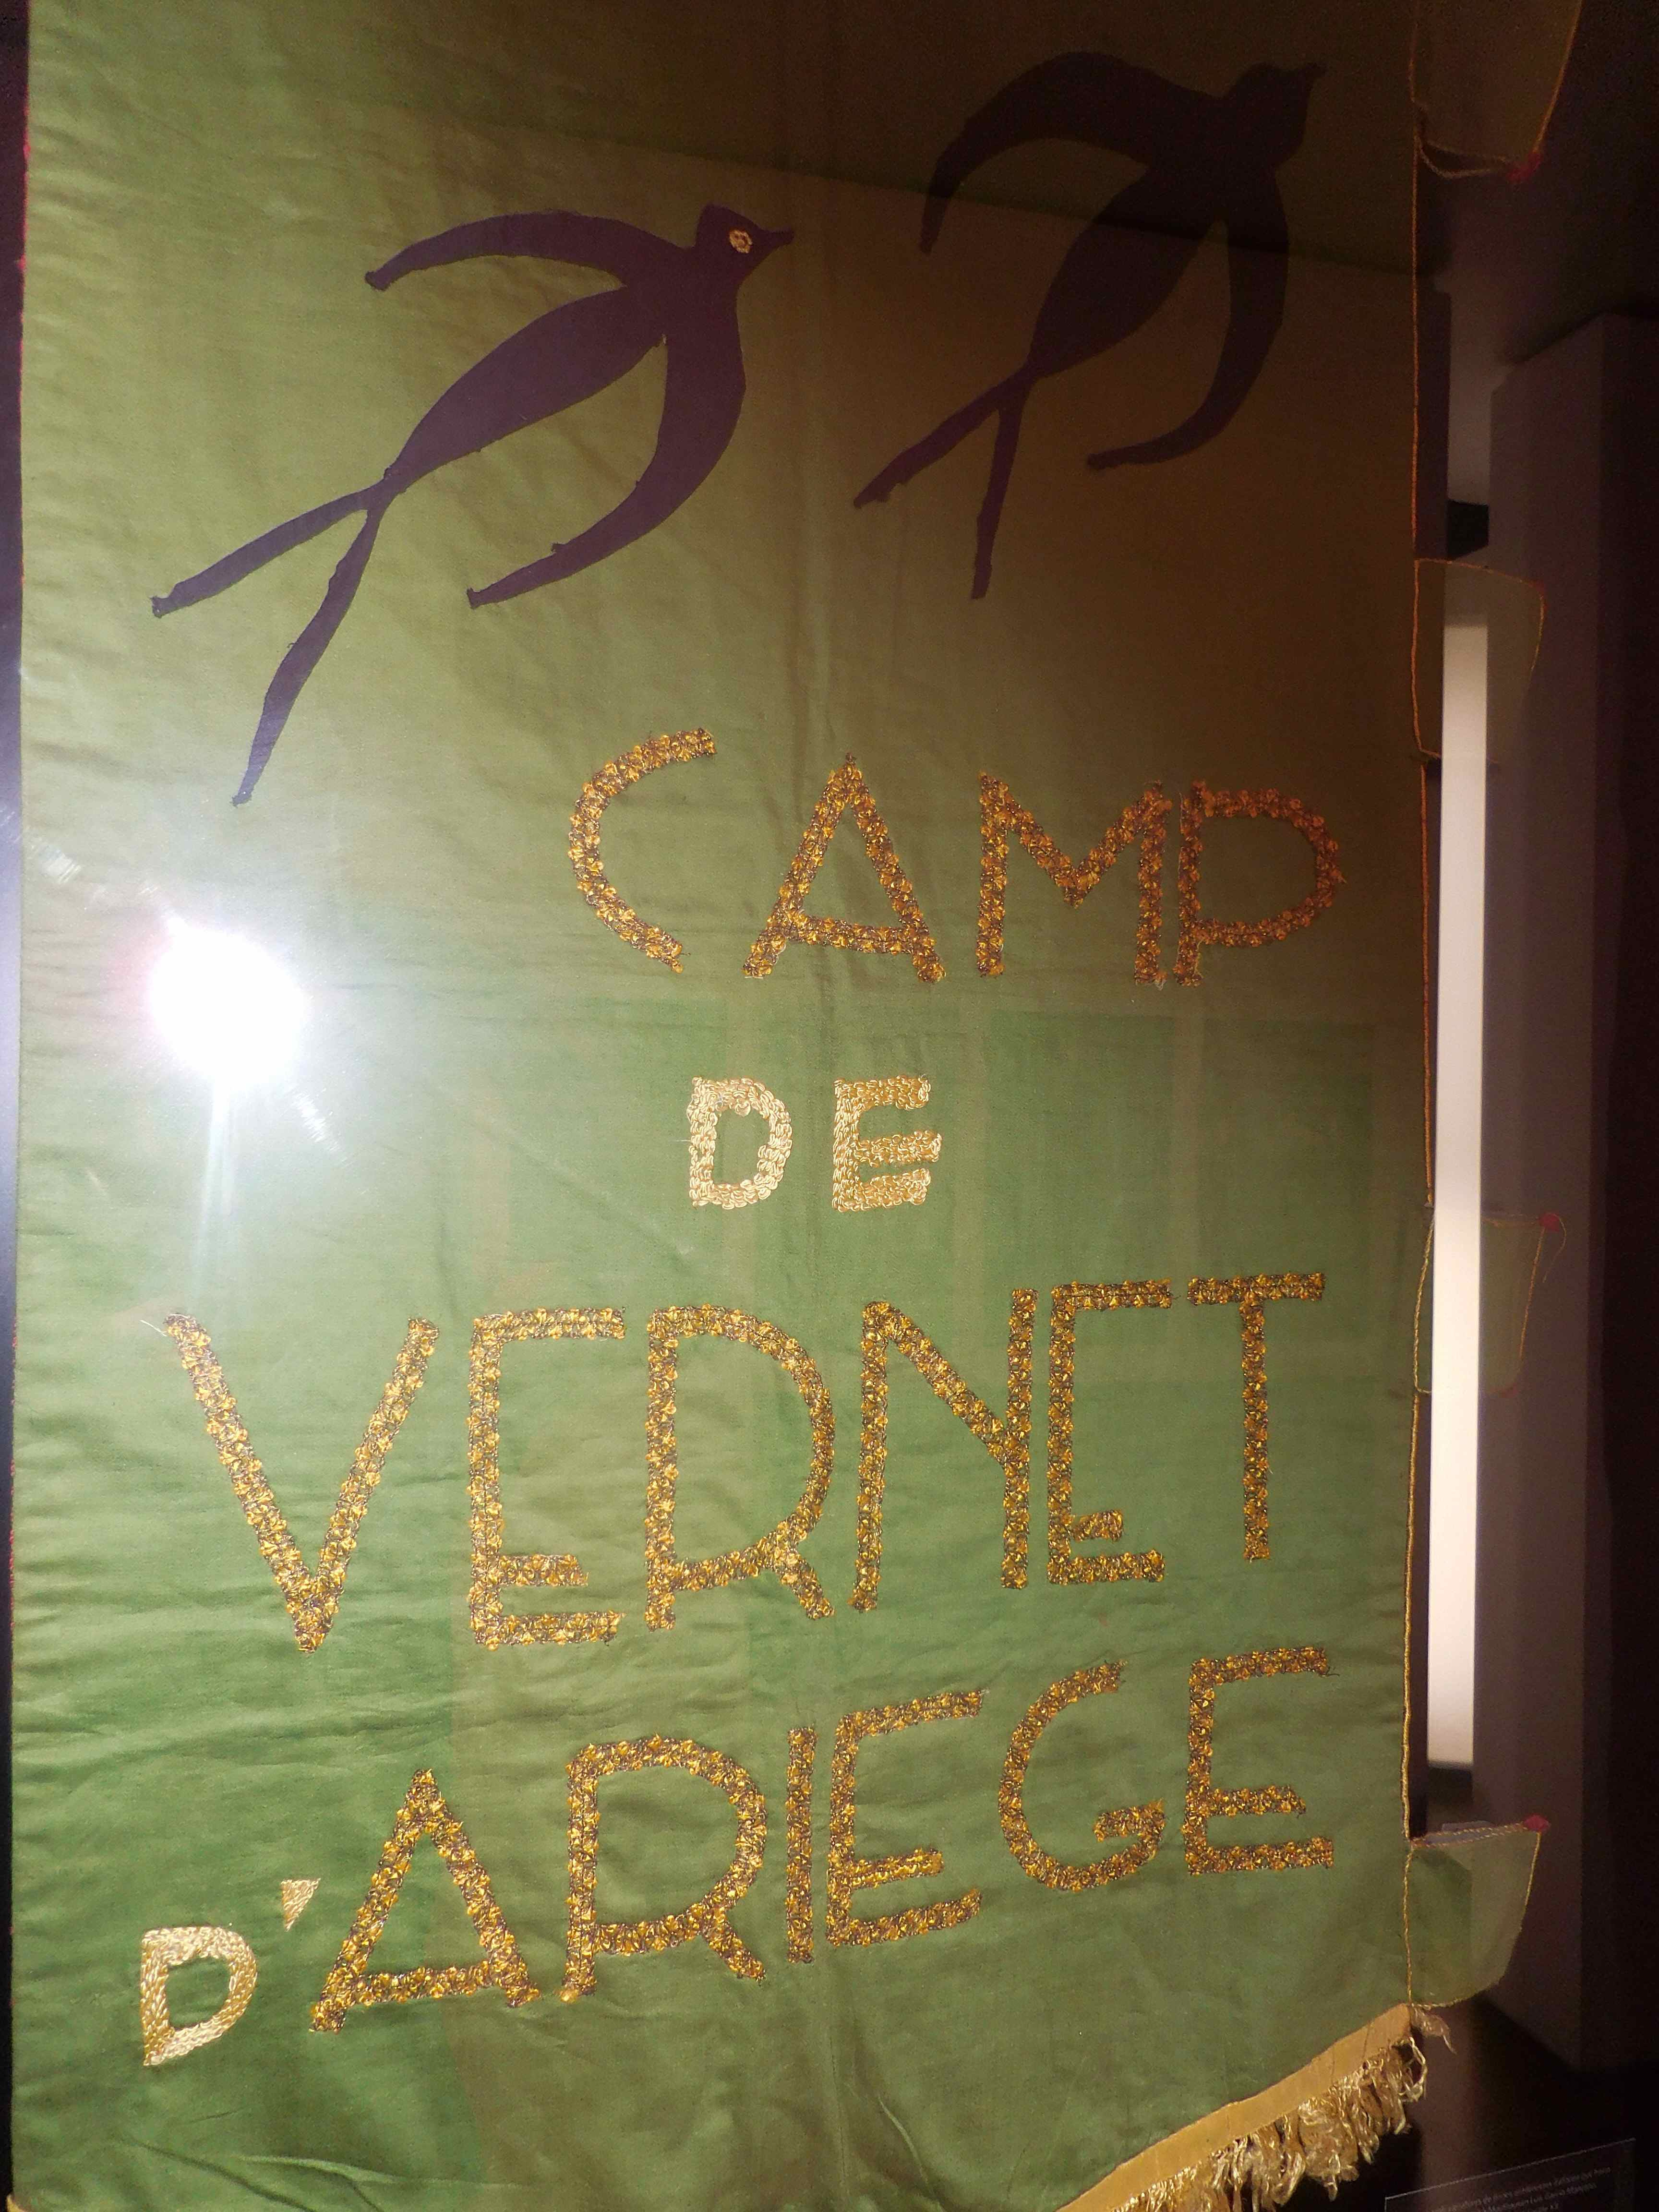 CAMP
DE
VERNET
D'ARIEGE